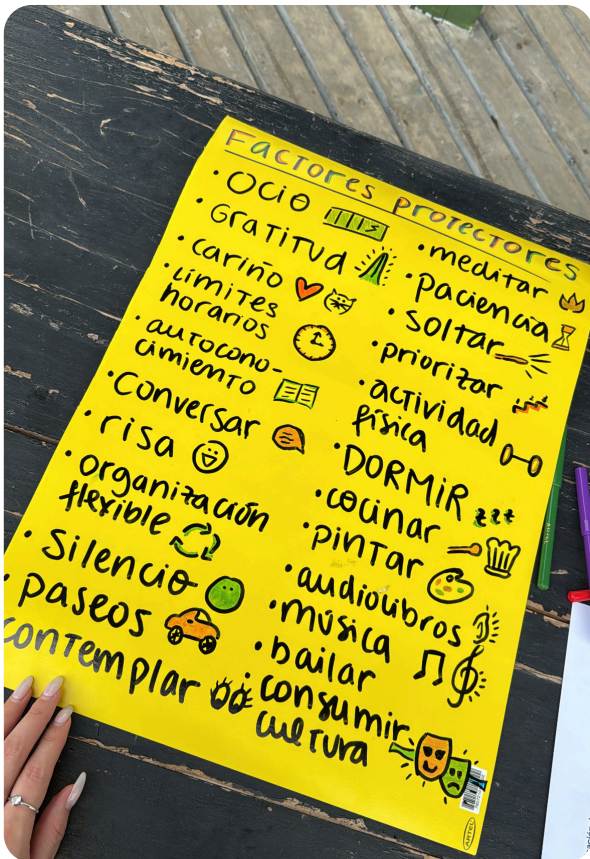 Factores protectores
• Ocio
• Gratitud
• cariño
• límites
horarios
• autocono-
cimiento
• Conversar
• risa
• organización
flexible
• Silencio
• paseos
contemplar
• meditar
• paciencia
• Soltar
• priorizar
• actividad
física
• DORMIR
zzz
• cocinar
• pintar
• audiolibros
• música
• bailar
• consumir
cultura
ARTEL